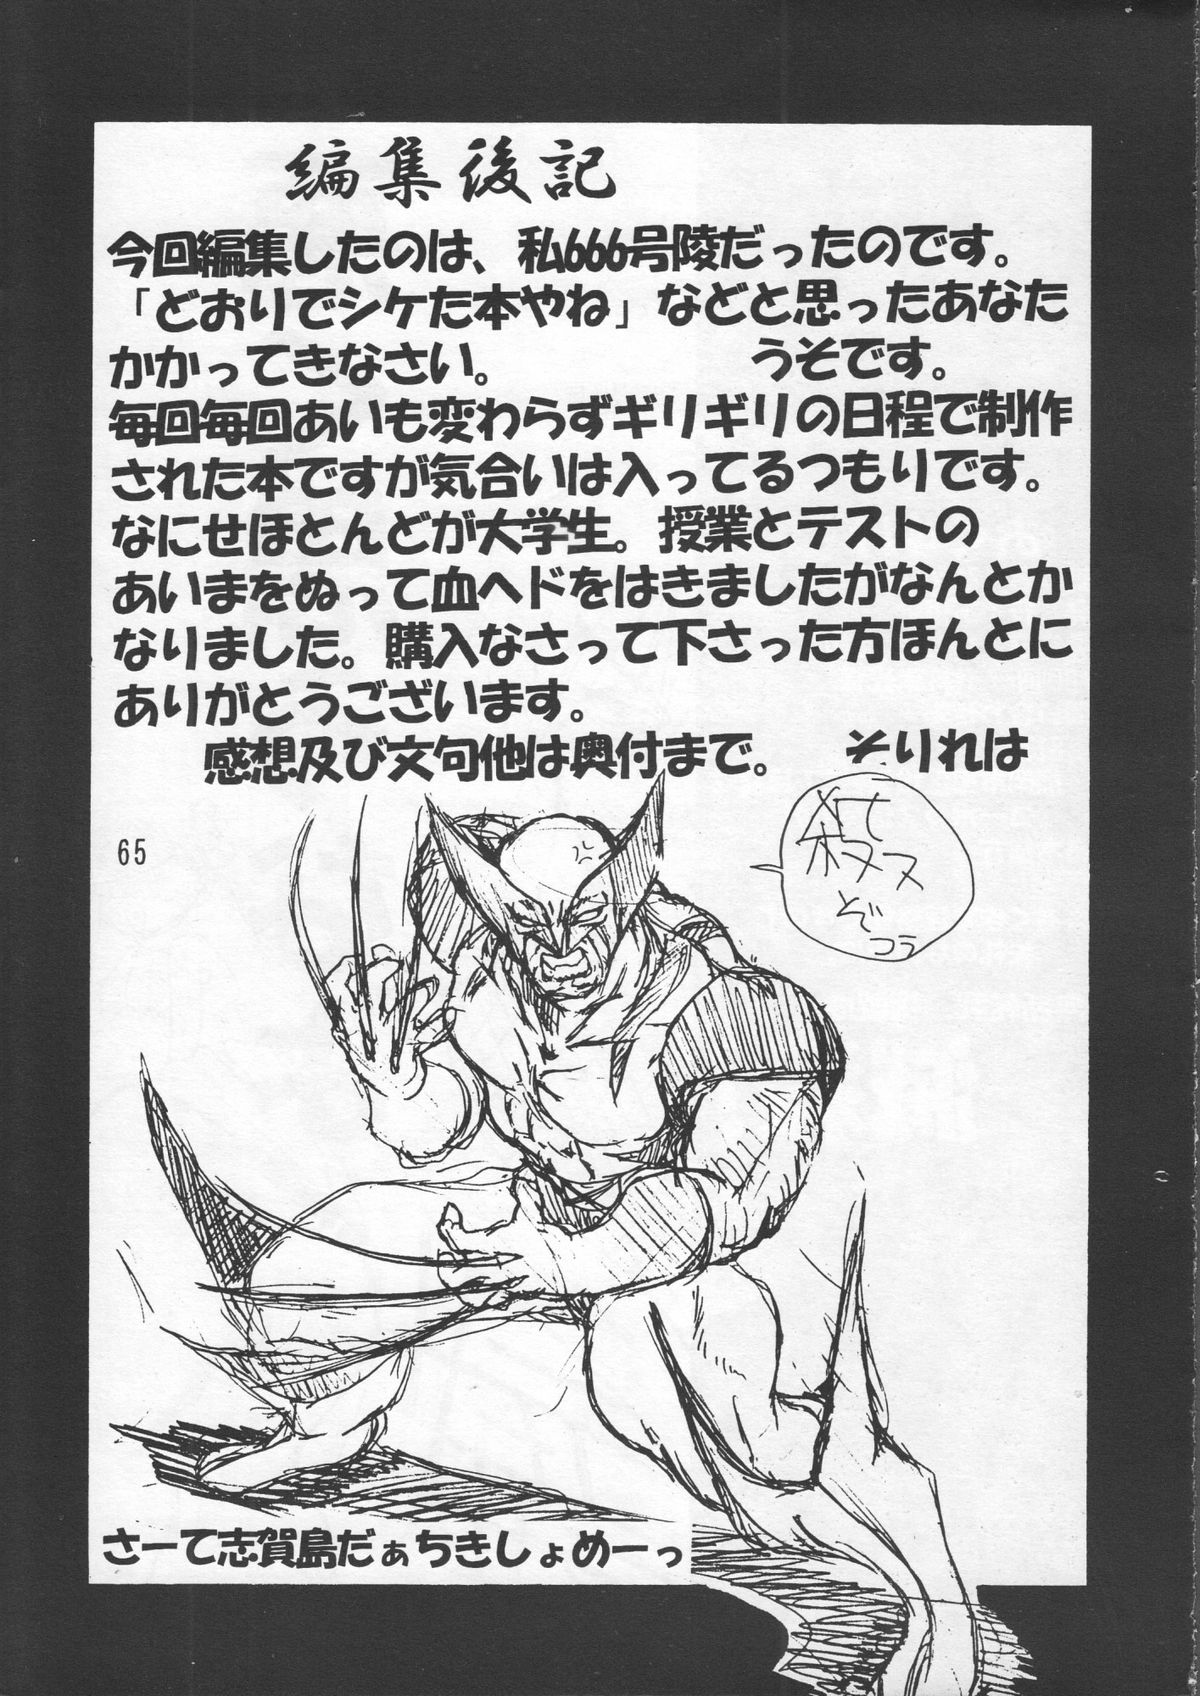 編集後記
今回編集したのは、私666号陵だったのです。
「どおりでシケた本やね」などと思ったあなた
かかってきなさい。　うそです。
毎回毎回あいも変わらずギリギリの日程で制作
された本ですが気合いは入ってるつもりです。
なにせほとんどが大学生。授業とテストの
あいまをぬって血ヘドをはきましたがなんとか
なりました。購入なさって下さった方ほんとに
ありがとうございます。
感想及び文句他は奥付まで。　そりれは
65
ぞ
コラ
さーて志賀島だぁちきしょめーっ